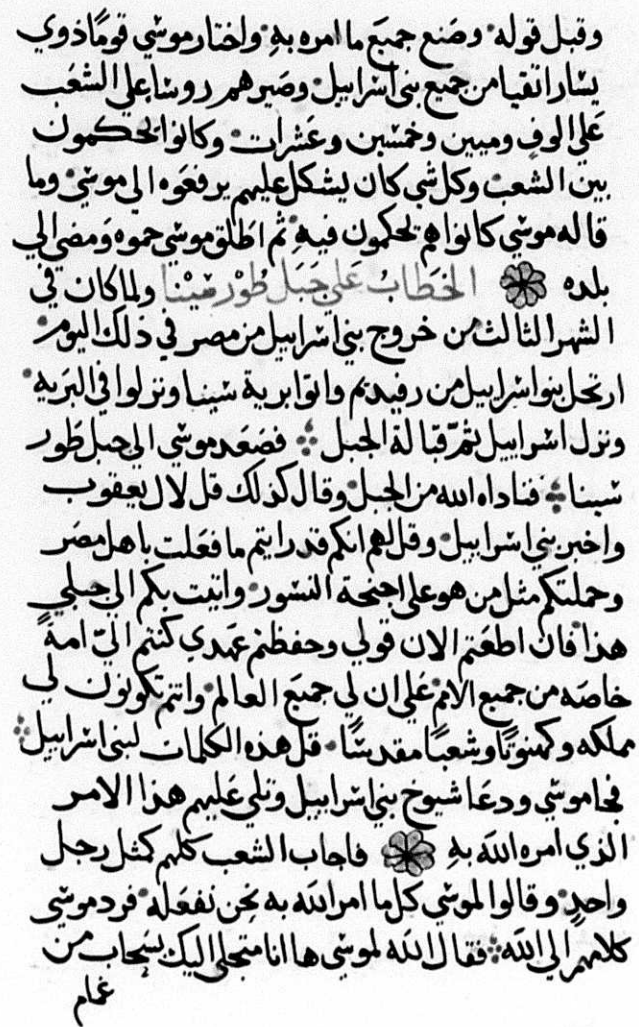 وقبل قوله وصنع جميع ما امره به واختار موسي قومًا ذوي
يسار اتقيا من جميع بني اسراييل وصيرهم روسا علي الشعب
علي الوف وميين وخمسين وعشرات وكانوا يحكمون
بين الشعب وكل شي كان يشكل عليهم يرفعوه الي موسي وما
قاله موسي كانوا هم يحكمون فيه ثم اطلق موسي حموه ومضي الي
بلده الخطاب علي جبل طور سينا ولما كان في
الشهر الثالث من خروج بني اسراييل من مصر في ذلك اليوم
ارتحل بنو اسراييل من رفيديم واتوا برية سينا ونزلوا في البرية
ونزل اسراييل ثمّ قبالة الجبل فصعد موسي الي جبل طور
سينا فناداه الله من الجبل وقال كذلك قل لال يعقوب
واخبر بني اسراييل وقل لهم انكم قد رايتم ما فعلت باهل مصر
وحملتكم مثل من هو علي اجنحة النسور واتيت بكم الي جبلي
هذا فان اطعتم الان قولي وحفظتم عهدي كنتم اليّ امةً
خاصه من جميع الامم علي ان لي جميع العالم وانتم تكونون لي
مملكه وكهنوتًا وشعبًا مقدسًا قل هذه الكلمات لبني اسراييل
فجا موسي ودعا شيوخ بني اسراييل وتلي عليهم هذا الامر
الذي امره الله به فاجاب الشعب كلهم كمثل رجل
واحدٍ وقالوا لموسي كل ما امر الله به نحن نفعله فرد موسي
كلامهم الي الله فقال الله لموسي ها انا متجلي اليك بسحاب من
غمام